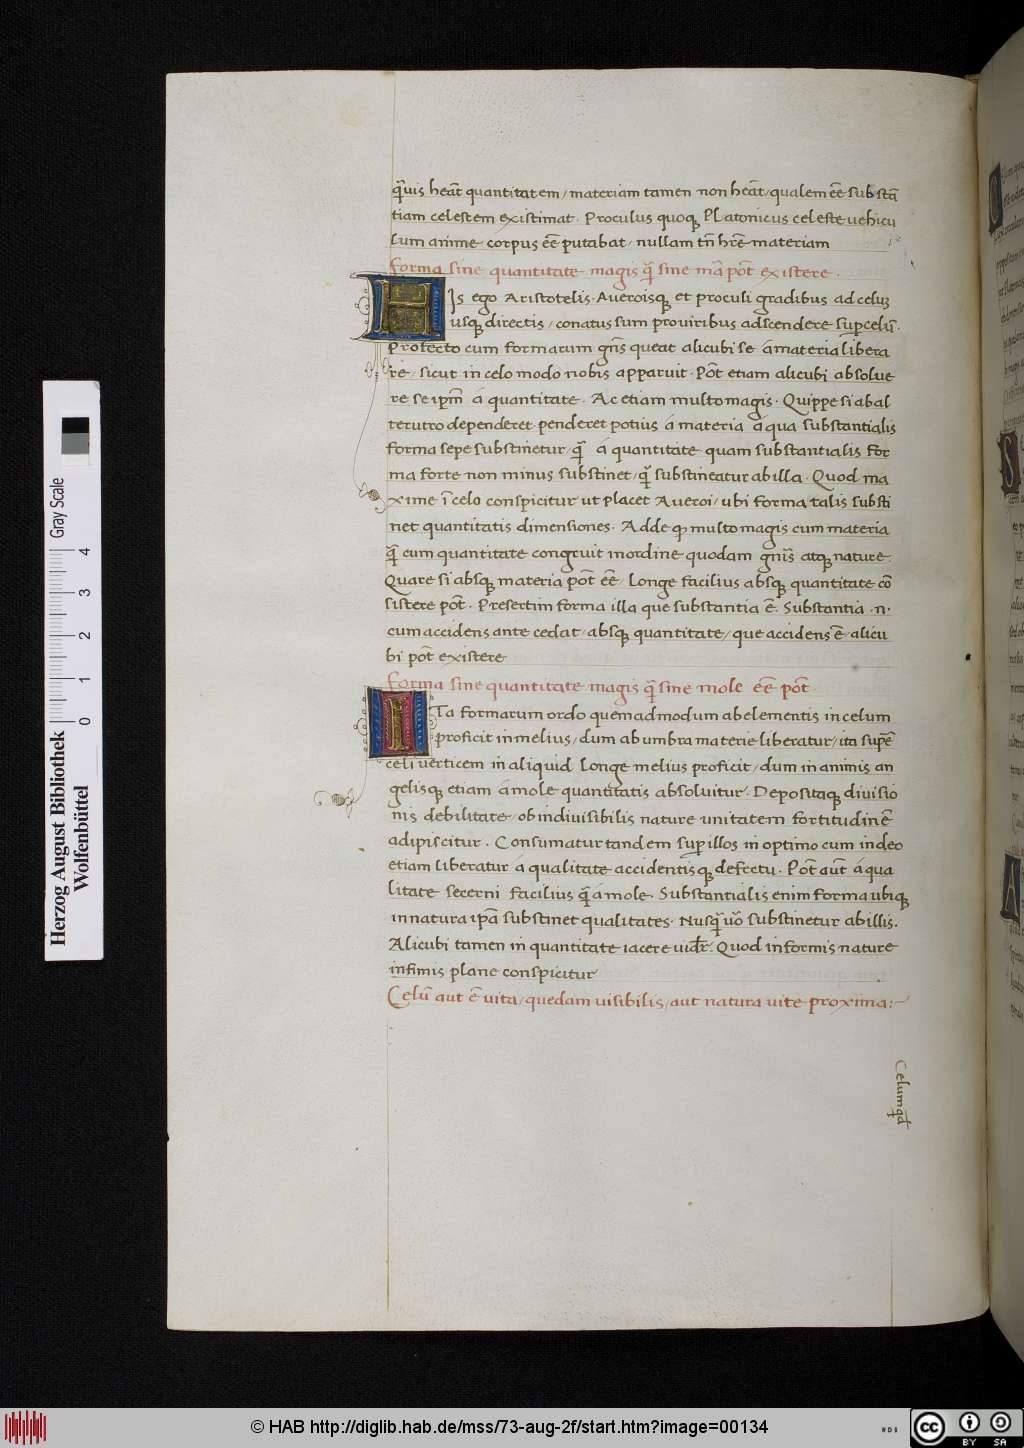 q̄uis heāt quantitatem / materiam tamen non heāt / qualem eē substā
tiam celestem existimat. Proculus quoq; Platonicus celeste uehicu
lum anime corpus eē putabat / nullam tn̄ hr̄e materiam
forma sine quantitate magis q̄ sine mā pōt existere.
HIs ego Aristotelis. Aueroisq; et proculi gradibus ad celuz
usq; directis / conatus sum pro uiribus adscendere sup celū.
Profecto cum formarum gn̄s queat alicubi se á materia libera
re / sicut in celo modo nobis apparuit. Pōt etiam alicubi absolue
re se ipm̄ á quantitate. Ac etiam multo magis. Quippe si ab al
terutro dependeret penderet potius á materia a qua substantialis
forma sepe substinetur / q̄ á quantitate quam substantialis for
ma forte non minus substinet / q̄ substineatur ab illa. Quod ma
xime ī celo conspicitur ut placet Aueroi / ubi forma talis substi
net quantitatis dimensiones. Adde q; multo magis cum materia
q̄ cum quantitate congruit in ordine quodam gn̄is atq; nature.
Quare si absq; materia pōt eē / Longe facilius absq; quantitate cō
sistere pōt. Presertim forma illa que substantia ē. Substantia .n.
cum accidens ante cedat / absq; quantitate / que accidens ē alicu
bi pōt existere
forma sine quantitate magis q̄ sine mole eē pōt.
ITa formarum ordo quemadmodum ab elementis in celum
proficit in melius / dum ab umbra materie liberatur / ita supē
celi uerticem in aliquid longe melius proficit / dum in animis an
gelisq; etiam á mole quantitatis absoluitur. Depositaq; diuisio
nis debilitate / ob indiuisibilis nature unitatem fortitudinē
adipiscitur. Consumatur tandem sup illos in optimo cum in deo
etiam liberatur á qualitate accidentisq; defectu. Pōt aūt á qua
litate secerni facilius q̄ á mole. Substantialis enim forma ubiq;
in natura ipā substinet qualitates. Nusq̄ uo substinetur ab illis.
Alicubi tamen in quantitate iacere uidr̄. Quod in formis nature
infimis plane conspicitur
Celū aut ē uita / quedam uisibilis / aut natura uite proxima:
Celum qd̄
Herzog August Bibliothek
Wolfenbüttel
0 1 2 3 4 Gray Scale
© HAB http://diglib.hab.de/mss/73-aug-2f/start.htm?image=00134
cc BY SA